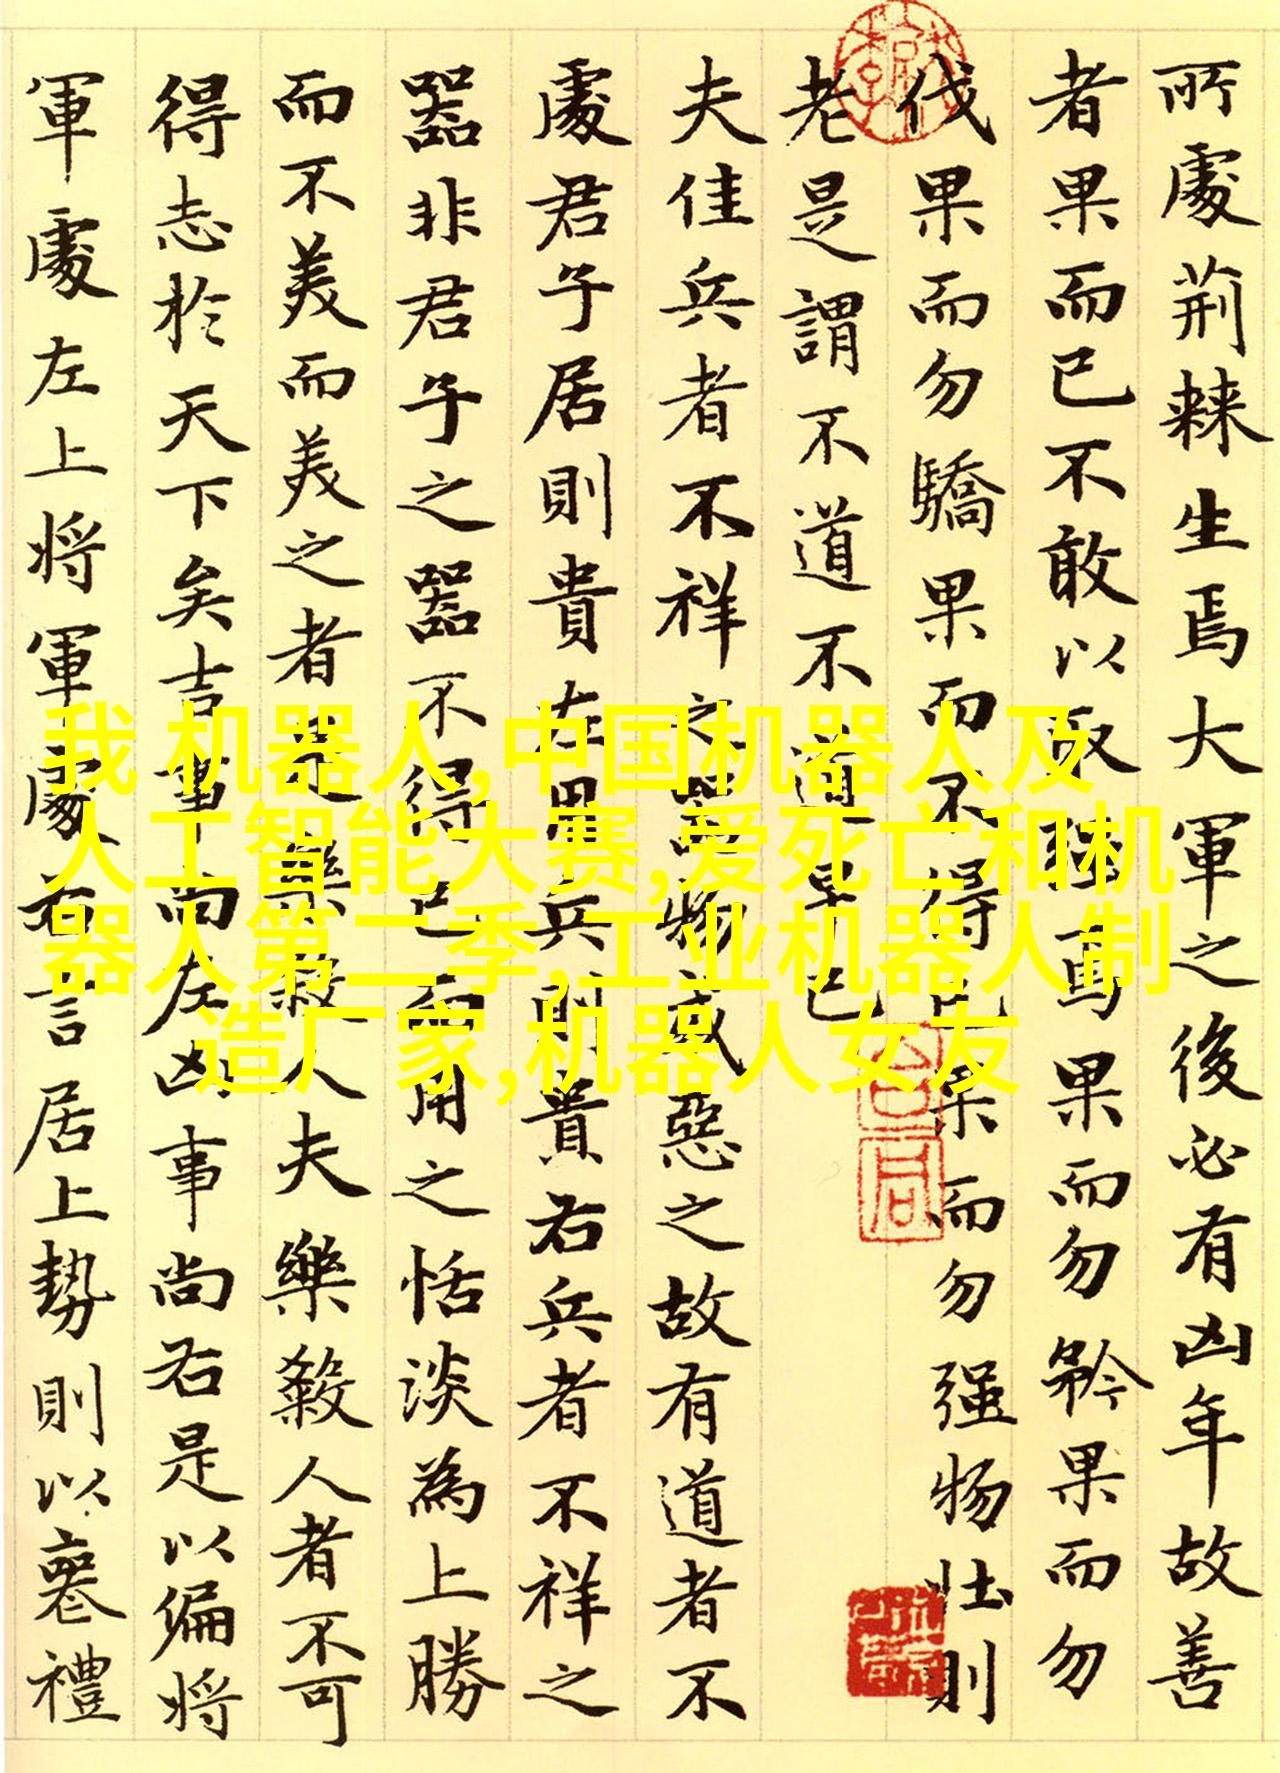 所處荊棘生焉大軍之後必有凶年故善
者果而已不敢以取强焉果而勿矜果而勿
伐果而勿驕果而不得已果而勿强物壯則
老是謂不道不道早已
夫佳兵者不祥之器物或惡之故有道者不
處君子居則貴左用兵則貴右兵者不祥之
器非君子之器不得已而用之恬淡為上勝
而不美而美之者是樂殺人夫樂殺人者不可
得志於天下矣吉事尚左凶事尚右是以偏將
軍處左上將軍處右言居上勢則以喪禮
我 机器人,中国机器人及
人工智能大赛,爱死亡和机
器人第二季,工业机器人制
造厂家,机器人女友